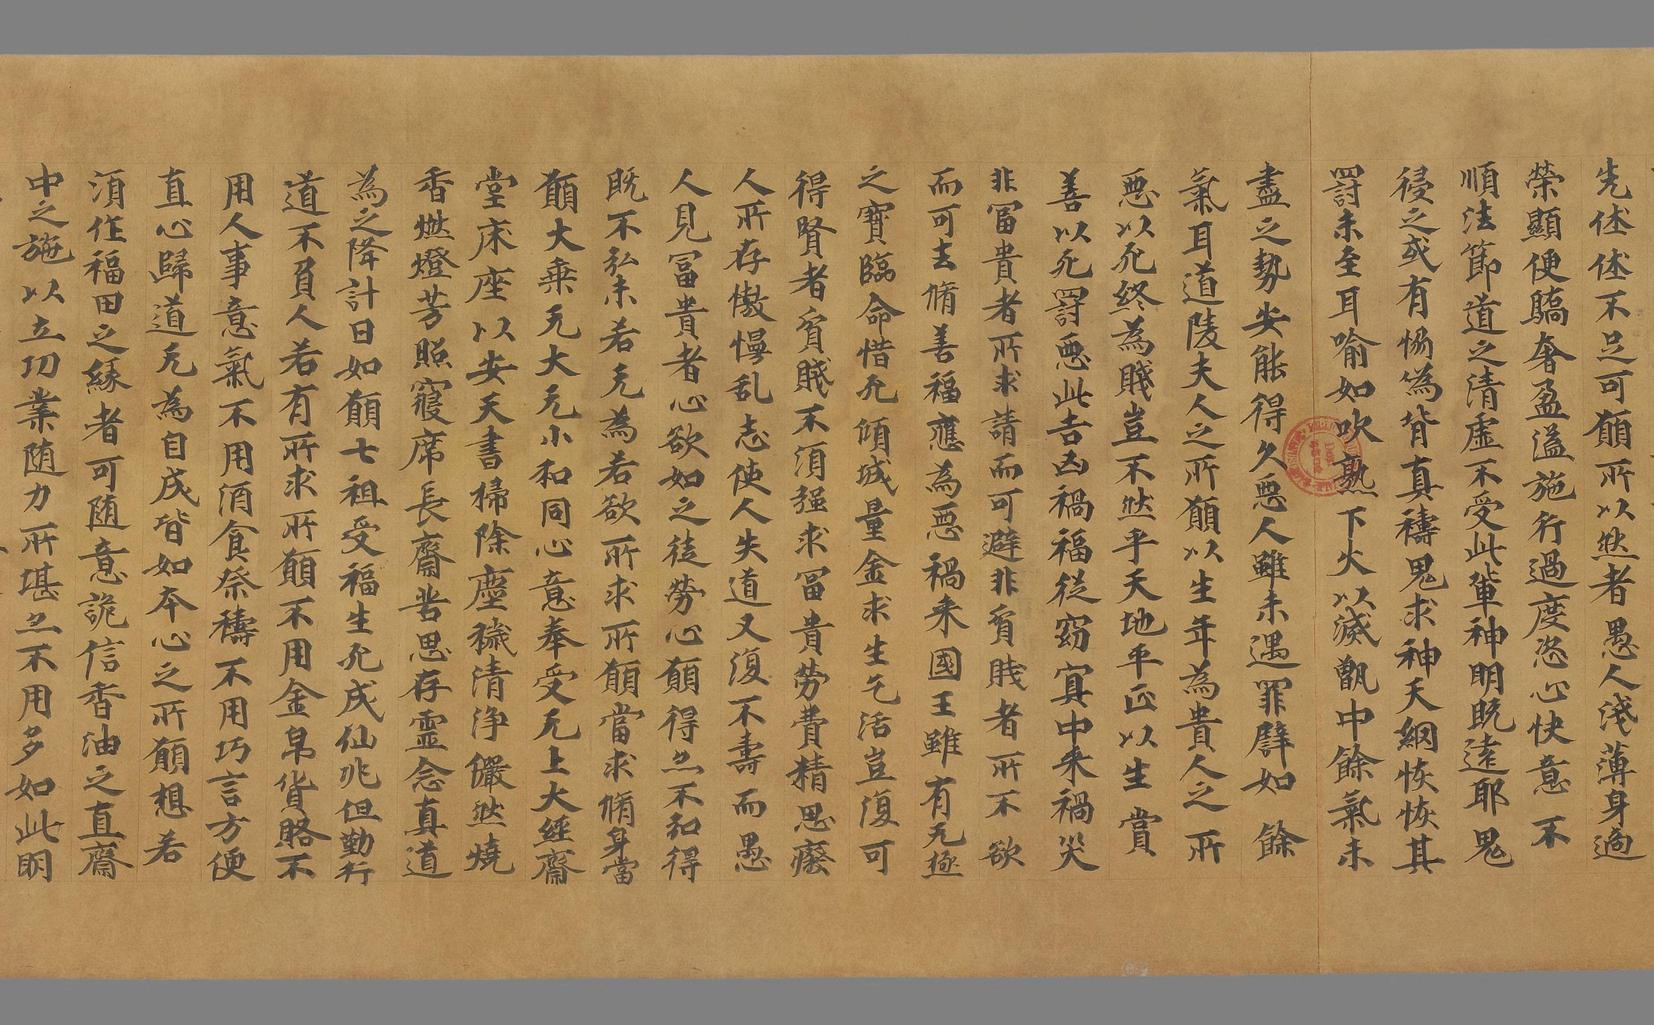 先怵怵不足可願所以然者愚人淺薄身適
榮顯便驕奢盈溢施行過度恣心快意不
順法節道之清虛不受此輩神明既遠耶鬼
侵之或有惱偽背真禱鬼求神天網恢恢其
罰未至耳喻如吹熟下火以滅甑中餘氣未
盡之勢安能得久惡人雖未遇罪譬如餘
氣耳道陵夫人之所願以生年為貴人之所
惡以死終為賤豈不然乎天地平正以生賞
善以死罰惡此吉凶禍福從窈冥中來禍災
非冨貴者所求請而可避非貧賎者所不欲
而可去脩善福應為惡禍来國王雖有无極
之寶臨命惜死傾城量金求生乞活豈復可
得賢者貧賤不須强求冨貴勞費精思癈
人所存憿慢乱志使人失道又復不壽而愚
人見冨貴者心欲如之徒勞心願得亦不知得
既不弘未若无為若欲所求所願當求脩身當
願大乗无大无小和同心意奉受无上大經齋
堂床座以安天書掃除塵穢清淨儼然燒
香燃燈芳照寢席長齋苦思存靈念真道
為之降計日如願七祖受福生死成仙兆但勤行
道不負人若有所求所願不用金帛貨賂不
用人事意氣不用酒食祭禱不用巧言方便
直心歸道无為自成皆如夲心之所願想若
湏作福田之緣者可随意詭信香油之直齋
中之施以立功業随力所堪亦不用多如此明